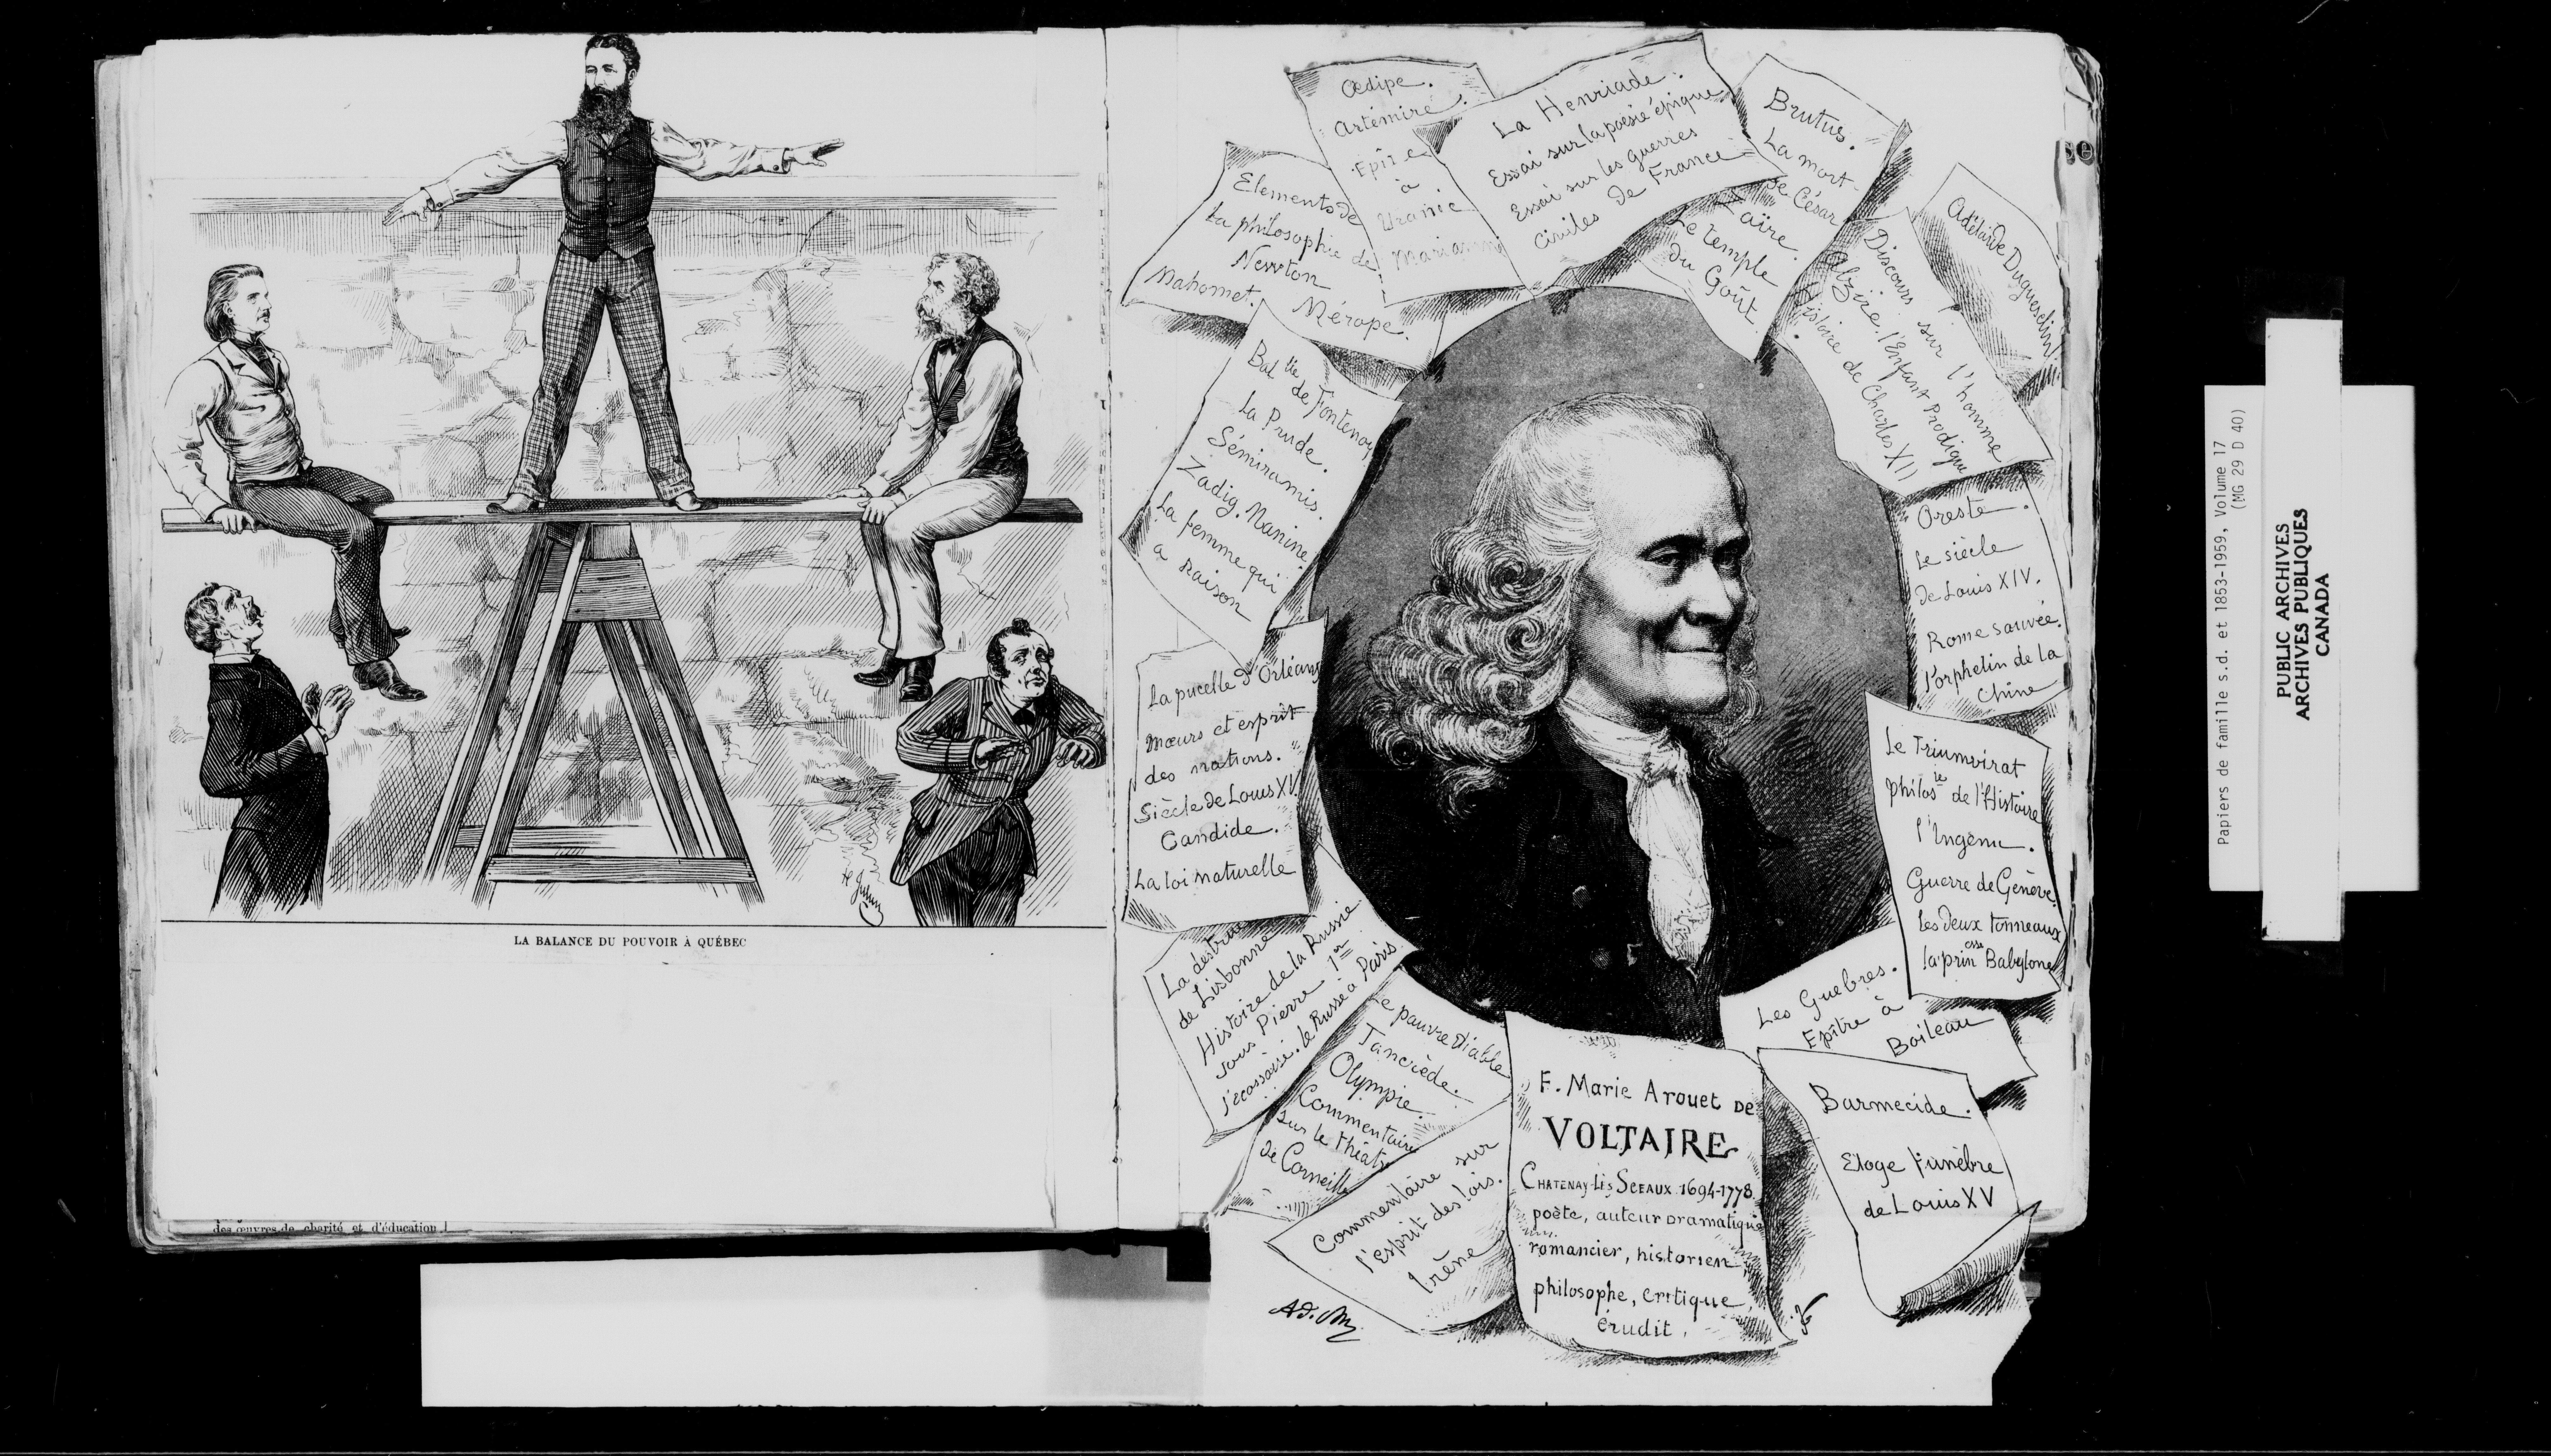 LA BALANCE DU POUVOIR À QUÉBEC
des œuvres de charité et d'éducation
Œdipe.
Artémire.
Epître
à
Uranie
Mariamne
La Henriade.
Essai sur la poésie épique
Essai sur les guerres
Civiles de France
Brutus.
La mort
de César
Zaïre.
Le temple
du Goût.
Adélaïde Duguesclin.
Discours sur l'homme
Alzire. l'Enfant Prodigue
Histoire de Charles XII
Elements de
la philosophie de
Newton
Mahomet.
Mérope.
Bat lle de Fontenoy
La Prude.
Sémiramis.
Zadig. Nanine.
La femme qui
a raison
Oreste.
Le siècle
de Louis XIV.
Rome sauvée.
l'orphelin de la
Chine
La pucelle d'Orléans
Mœurs et esprit
des nations.
Siècle de Louis XV
Candide.
La loi naturelle
Le Triumvirat
philos ie de l'Histoire
l'Ingénu.
Guerre de Genève.
Les deux tonneaux
la prin esse Babylone
La destruc
de Lisbonne
Histoire de la Russie
sous Pierre 1er
l'écossaise. le Russe à Paris
Le pauvre Diable
Tancrède.
Olympie.
Commentaire
sur le théatre
de Corneille
Commentaire sur
l'Esprit des lois.
Irène
Les Guebres.
Epître à
Boileau
Barmecide.
Eloge funèbre
de Louis XV
F. Marie Arouet DE
VOLTAIRE
CHATENAY-LÈS SCEAUX 1694-1778
poète, auteur dramatique
romancier, historien,
philosophe, critique,
érudit.
Papiers de famille s.d. et 1853-1959, Volume 17
(MG 29 D 40)
PUBLIC ARCHIVES
ARCHIVES PUBLIQUES
CANADA